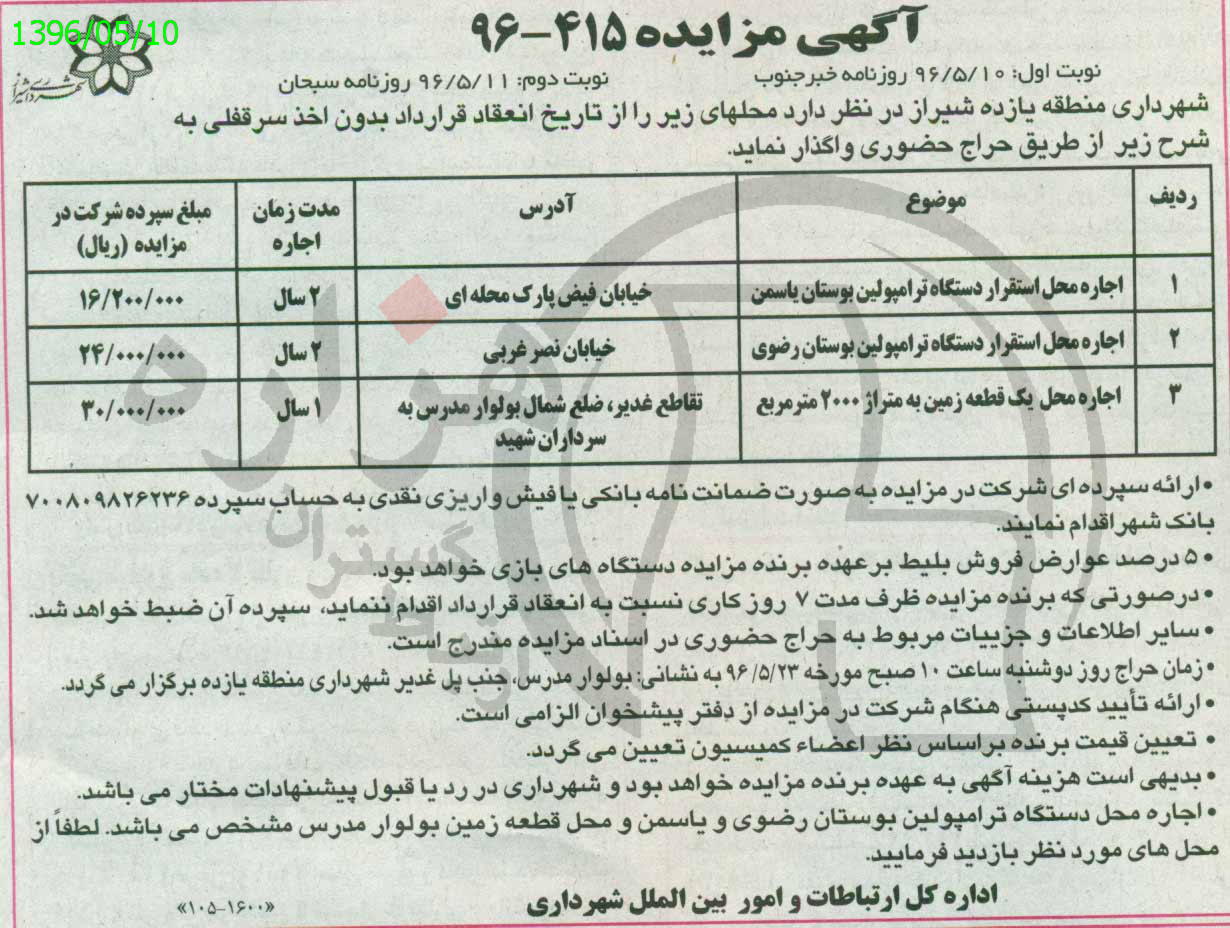 1396/05/10
شهرداری شیراز
آگهی مزایده ۴۱۵-۹۶
نوبت اول: ۹۶/۵/۱۰ روزنامه خبرجنوب نوبت دوم: ۹۶/۵/۱۱ روزنامه سبحان
شهرداری منطقه یازده شیراز در نظر دارد محلهای زیر را از تاریخ انعقاد قرارداد بدون اخذ سرقفلی به
شرح زیر از طریق حراج حضوری واگذار نماید.
ردیف موضوع آدرس مدت زمان اجاره مبلغ سپرده شرکت در مزایده (ریال)
۱ اجاره محل استقرار دستگاه ترامپولین بوستان یاسمن خیابان فیض پارک محله ای ۲ سال ۱۶/۲۰۰/۰۰۰
۲ اجاره محل استقرار دستگاه ترامپولین بوستان رضوی خیابان نصر غربی ۲ سال ۲۴/۰۰۰/۰۰۰
۳ اجاره محل یک قطعه زمین به متراژ ۲۰۰۰ مترمربع تقاطع غدیر، ضلع شمال بولوار مدرس به سرداران شهید ۱ سال ۳۰/۰۰۰/۰۰۰
• ارائه سپرده ای شرکت در مزایده به صورت ضمانت نامه بانکی یا فیش واریزی نقدی به حساب سپرده ۷۰۰۸۰۹۸۲۶۲۳۶
بانک شهر اقدام نمایند.
• ۵ درصد عوارض فروش بلیط بر عهده برنده مزایده دستگاه های بازی خواهد بود.
• درصورتی که برنده مزایده ظرف مدت ۷ روز کاری نسبت به انعقاد قرارداد اقدام ننماید، سپرده آن ضبط خواهد شد.
• سایر اطلاعات و جزییات مربوط به حراج حضوری در اسناد مزایده مندرج است.
• زمان حراج روز دوشنبه ساعت ۱۰ صبح مورخه ۹۶/۵/۲۳ به نشانی: بولوار مدرس، جنب پل غدیر شهرداری منطقه یازده برگزار می گردد.
• ارائه تأیید کدپستی هنگام شرکت در مزایده از دفتر پیشخوان الزامی است.
• تعیین قیمت برنده براساس نظر اعضاء کمیسیون تعیین می گردد.
• بدیهی است هزینه آگهی به عهده برنده مزایده خواهد بود و شهرداری در رد یا قبول پیشنهادات مختار می باشد.
• اجاره محل دستگاه ترامپولین بوستان رضوی و یاسمن و محل قطعه زمین بولوار مدرس مشخص می باشد. لطفاً از
محل های مورد نظر بازدید فرمایید.
اداره کل ارتباطات و امور بین الملل شهرداری
«۱۰۵-۱۶۰۰»
هزاره
گستران